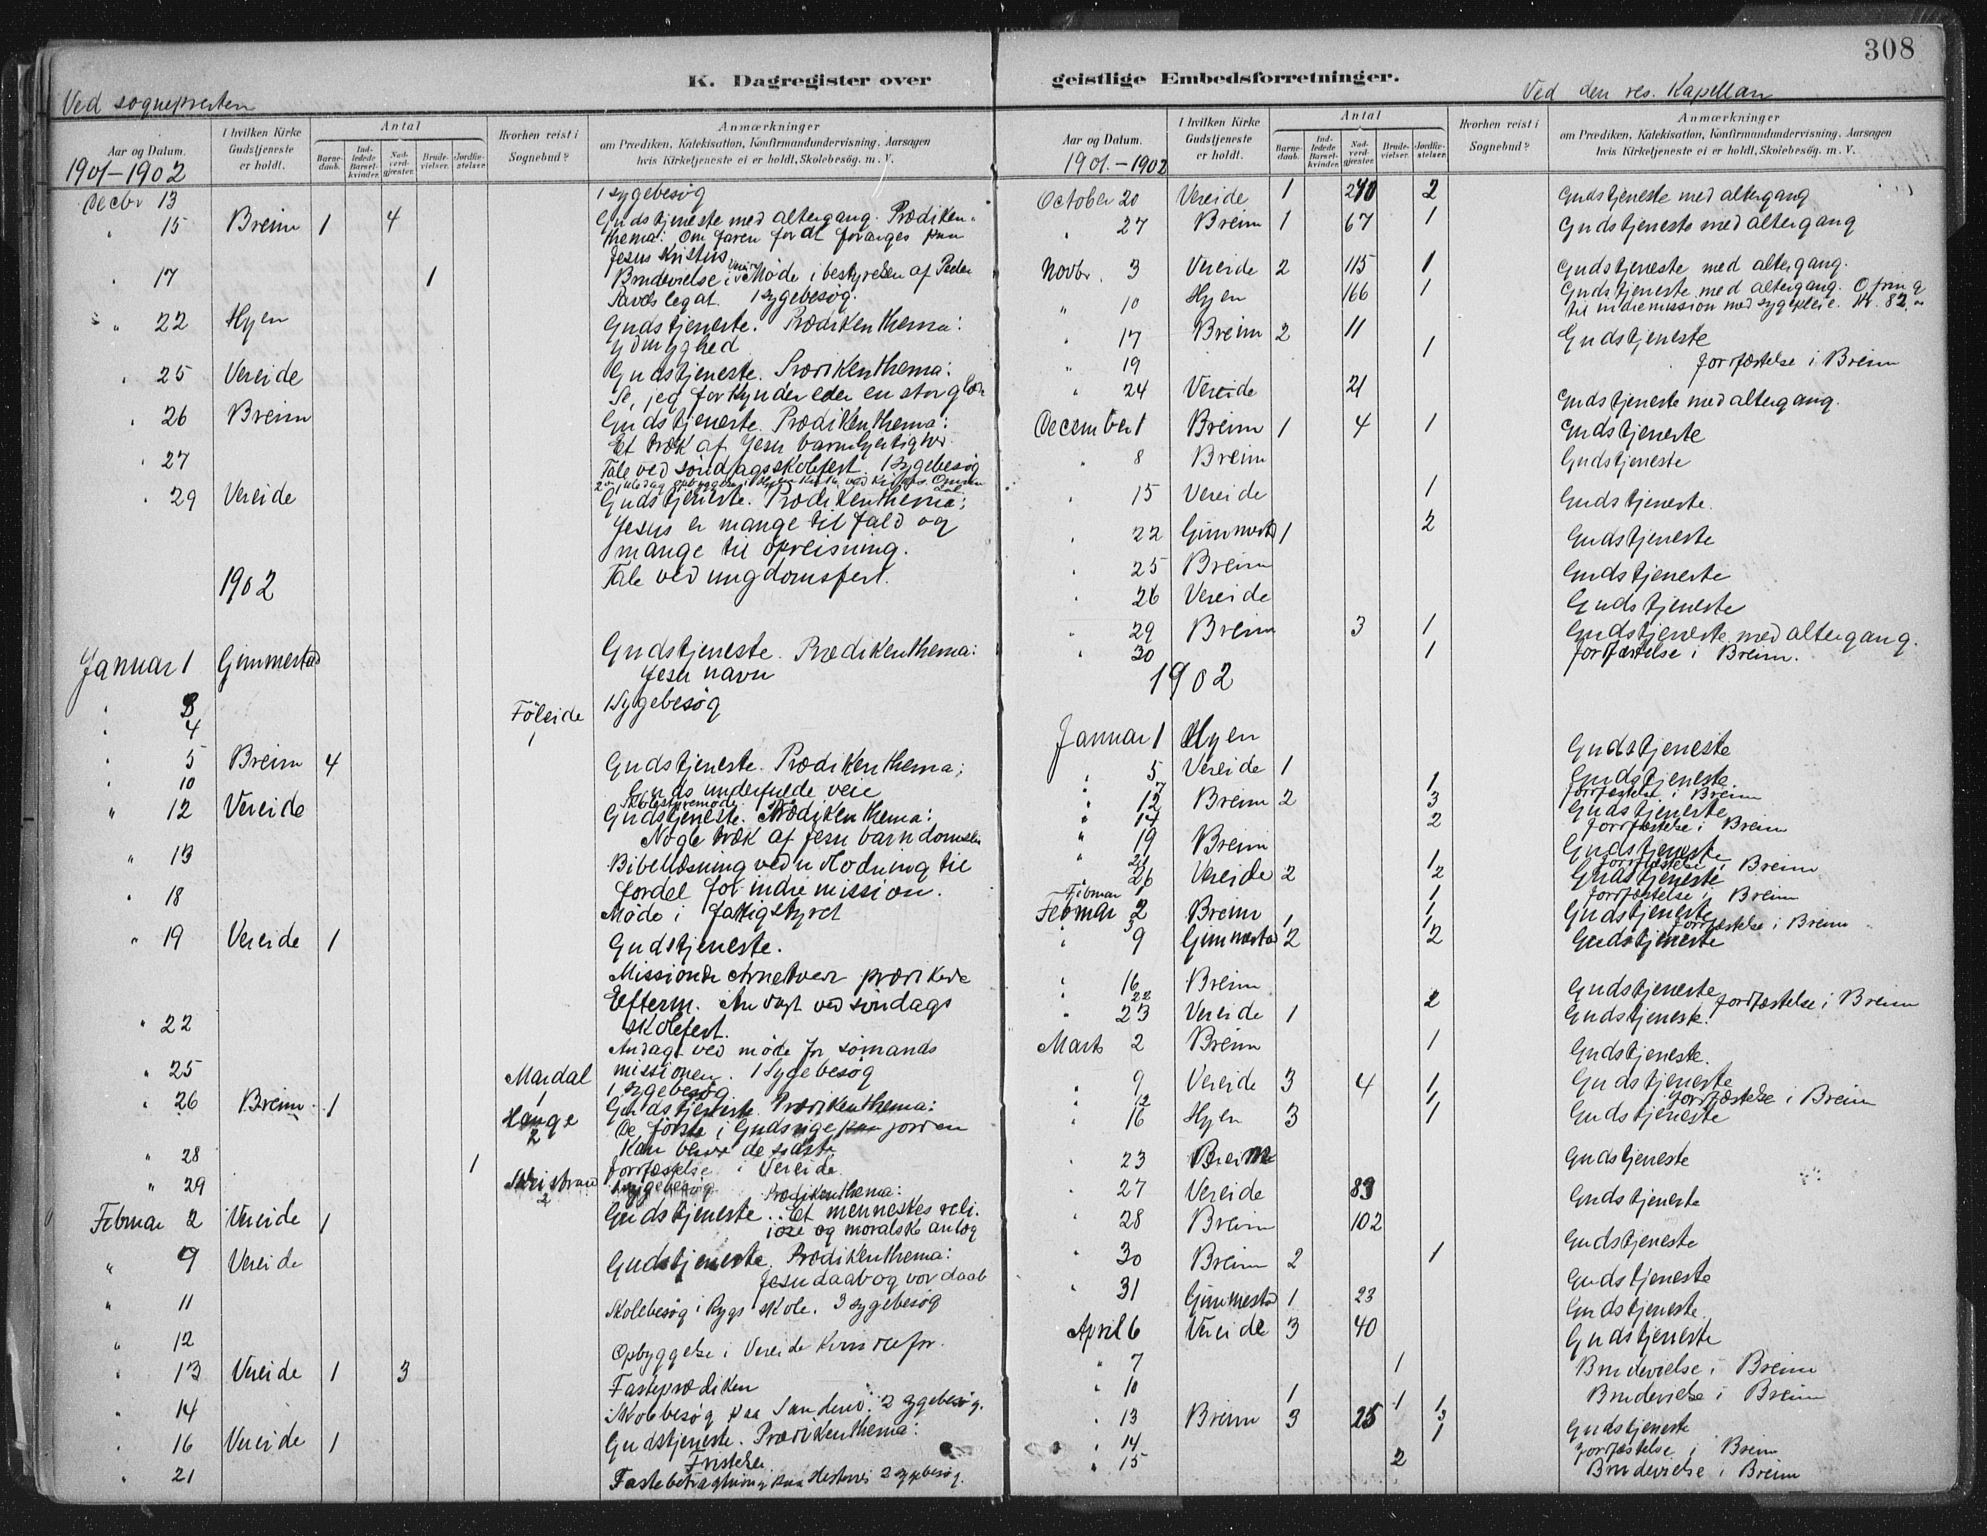 308
K. Dagregister over
Ved sognepresten
Aar og Datum.
1901–1902
I hvilken Kirke Gudstjeneste er holdt.
Antal
Barnedaab.
Indledede Barselkvinder.
Nadverdgjester.
Brudevielser.
Jordfæstelser.
Hvorhen reist i Sognebud?
Anmærkninger
om Prædiken, Katekisation, Konfirmandundervisning, Aarsagen
hvis Kirketjeneste ei er holdt, Skolebesøg m. V.
Decbr 13 1 sygebesøg
" 15 Breim 1 4 Gudstjeneste med altergang. Prædiken-
thema: Om faren for at forarges paa
Jesus Kristus
" 17 1 Brudevielse i Vereide Møde i bestyrelsen af Peder
legat. 1 sygebesøg.
" 22 Hyen Gudstjeneste. Prædikenthema:
Ydmyghed
" 25 Vereide Gudstjeneste. Prædikenthema:
Se, jeg forkynder eder en stor glæde
" 26 Breim Gudstjeneste. Prædikenthema:
Et træk af Jesu barmhjertighed
" 27 Tale ved søndagsskolefest. 1 sygebesøg
" 29 Vereide Gudstjeneste. Prædikenthema:
Jesus er mange til fald og
mange til opreisning.
Tale ved ungdomsfest.
1902
Januar 1 Gimmestad Gudstjeneste. Prædikenthema:
Jesu navn
" 3 Føleide 1 Sygebesøg
" 4 1
" 5 Breim 4 Gudstjeneste. Prædikenthema:
Guds underfulde veie
" 10 Skolestyremøde
" 12 Vereide Gudstjeneste. Prædikenthema:
Nogle træk af Jesu barndomsliv
" 13 Bibellæsning ved utlodning til
fordel for indre mission.
" 18 Møde i fattigstyret
" 19 Vereide 1 Gudstjeneste.
prædikede
Efterm. Andagt ved søndags
skolefest.
" 22 Andagt ved møde for sømands
missionen. 1 Sygebesøg
" 25 Mardal 1 1 sygebesøg
" 26 Breim 1 Hauge 2 Gudstjeneste. Prædikenthema:
De første i Guds rige paa jorden
kan blive de sidste
" 28 1 Jordfæstelse i Vereide
" 29 2 sygebesøg
Februar 2 Vereide 1 Gudstjeneste. Prædikenthema: Et menneskes reli-
iøse og moralske anlæg
" 9 Vereide Gudstjeneste. Prædikenthema:
Jesu daab og vor daab
" 11 Skolebesøg i Rygs skole. 3 sygebesøg
" 12 Opbyggelse i Vereide Kvindefor.
" 13 Vereide 1 3 Fasteprædiken
" 14 Skolebesøg paa Sandene. 2 sygebesøg.
" 16 Vereide 1 Gudstjeneste. Prædikenthema:
Fristelse
" 21 Fastebetragtning paa Hestenes 2 sygebesøg.
geistlige Embedsforretninger.
Ved den res. Kapellan
Aar og Datum.
1901.–1902
I hvilken Kirke Gudstjeneste er holdt.
Antal
Barnedaab.
Indledede Barselkvinder.
Nadverdgjester.
Brudevielser.
Jordfæstelser.
Hvorhen reist i Sognebud?
Anmærkninger
om Prædiken, Katekisation, Konfirmandundervisning, Aarsagen
hvis Kirketjeneste ei er holdt, Skolebesøg m. V.
October 20 Vereide 1 2 Gudstjeneste med altergang
" 27 Breim 1 67 1 Gudstjeneste med altergang
Novbr. 3 Vereide 2 115 1 Gudstjeneste med altergang.
" 10 Hyen 166 1 Gudstjeneste med altergang. Ofring
til indremission med sygepleie. Kr. 82.
" 17 Breim 2 11 Gudstjeneste
" 19 1 Jordfæstelse i Breim
" 24 Vereide 21 Gudstjeneste med altergang.
December 1 Breim 1 4 1 Gudstjeneste
" 8 Breim Gudstjeneste
" 15 Vereide 1 Gudstjeneste.
" 22 Gimmestad 1 2 Gudstjeneste
" 25 Breim Gudstjeneste
" 26 Vereide Gudstjeneste
" 29 Breim 3 1 Gudstjeneste med altergang.
" 30 1 Jordfæstelse i Breim.
1902
Januar 1 Hyen Gudstjeneste
" 5 Vereide 1 Gudstjeneste
" 7 1 Jordfæstelse i Breim
" 12 Breim 2 3 Gudstjeneste
" 14 2 Jordfæstelse i Breim
" 19 Breim Gudstjeneste
" 21 1 Jordfæstelse i Breim
" 26 Vereide 2 2 Gudstjeneste
Februar 1 1 Jordfæstelse i Breim
Februar 2 Breim 1 1 Gudstjeneste
" 3 1 Jordfæstelse i Breim
" 9 Gimmestad 2 2 Gudstjeneste
" 16 Breim Gudstjeneste
" 22 2 Jordfæstelse i Breim
" 23 Vereide 1 Gudstjeneste.
Marts 2 Breim 1 Gudstjeneste.
" 9 Vereide 3 4 1 Gudstjeneste
" 12 1 Jordfæstelse i Breim
" 16 Hyen 3 1 Gudstjeneste
" 23 Breim Gudstjeneste
" 27 Vereide 83 Gudstjeneste
" 28 Breim 102 Gudstjeneste
" 30 Breim 2 1 Gudstjeneste
" 31 Gimmestad 1 23 Gudstjeneste.
April 6 Vereide 3 40 Gudstjeneste
" 7 1 Brudevielse i Breim
" 10 1 1 Brudevielse i Breim
" 13 Breim 3 25 3 Gudstjeneste
" 14 1 Jordfæstelse i Breim
" 15 2 Brudevielse i Breim